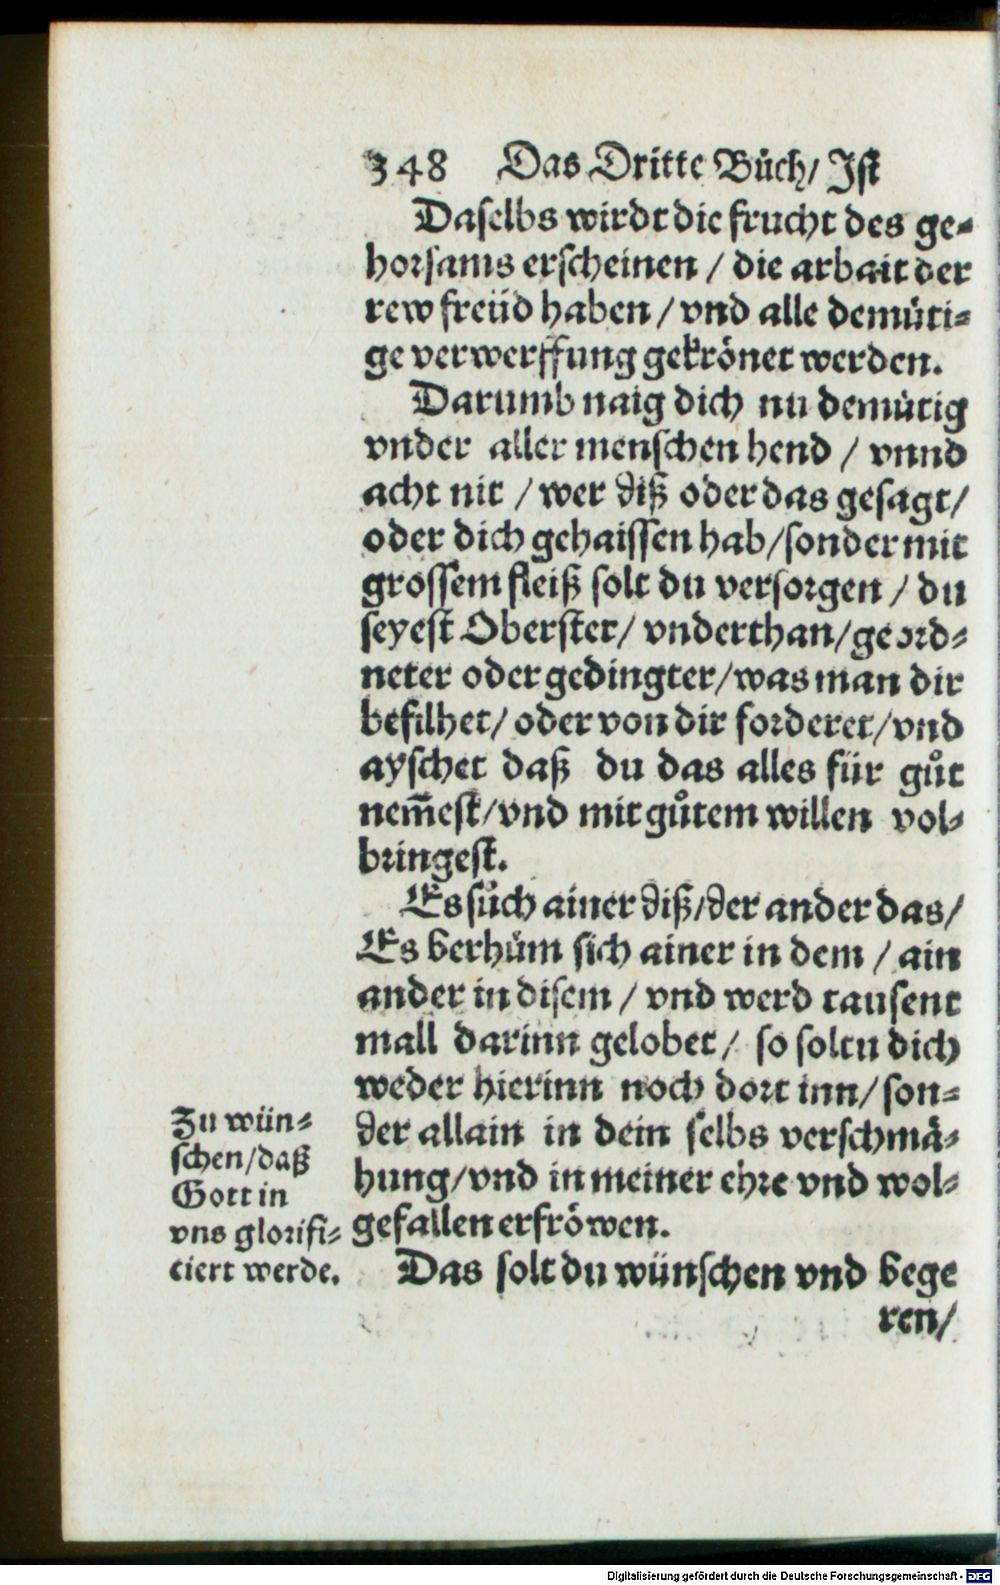 348 Das Dritte Bůch/ Ist
Daselbs wirdt die frucht des ge-
horsams erscheinen / die arbait der
rew freüd haben / vnd alle demüti-
ge verwerffung gekrönet werden.
Darumb naig dich nu demütig
vnder aller menschen hend / vnnd
acht nit / wer diß oder das gesagt/
oder dich gehaissen hab/sonder mit
grossem fleiß solt du versorgen / du
seyest Oberster/ vnderthan/geord-
neter oder gedingter/was man dir
befilhet/ oder von dir forderet/vnd
ayschet daß du das alles für gůt
nem̃est/vnd mit gůtem willen vol-
bringest.
Es sůch ainer diß/der ander das/
Es berhům sich ainer in dem / ain
ander in disem / vnd werd tausent
mall darinn gelobet / so soltu dich
weder hierinn noch dort inn/son-
der allain in dein selbs verschmä-
hung/vnd in meiner ehre vnd wol-
gefallen erfröwen.
Zu wün-
schen/daß
Gott in
vns glorifi-
ciert werde.
Das solt du wünschen vnd bege
ren/
Digitalisierung gefördert durch die Deutsche Forschungsgemeinschaft - DFG